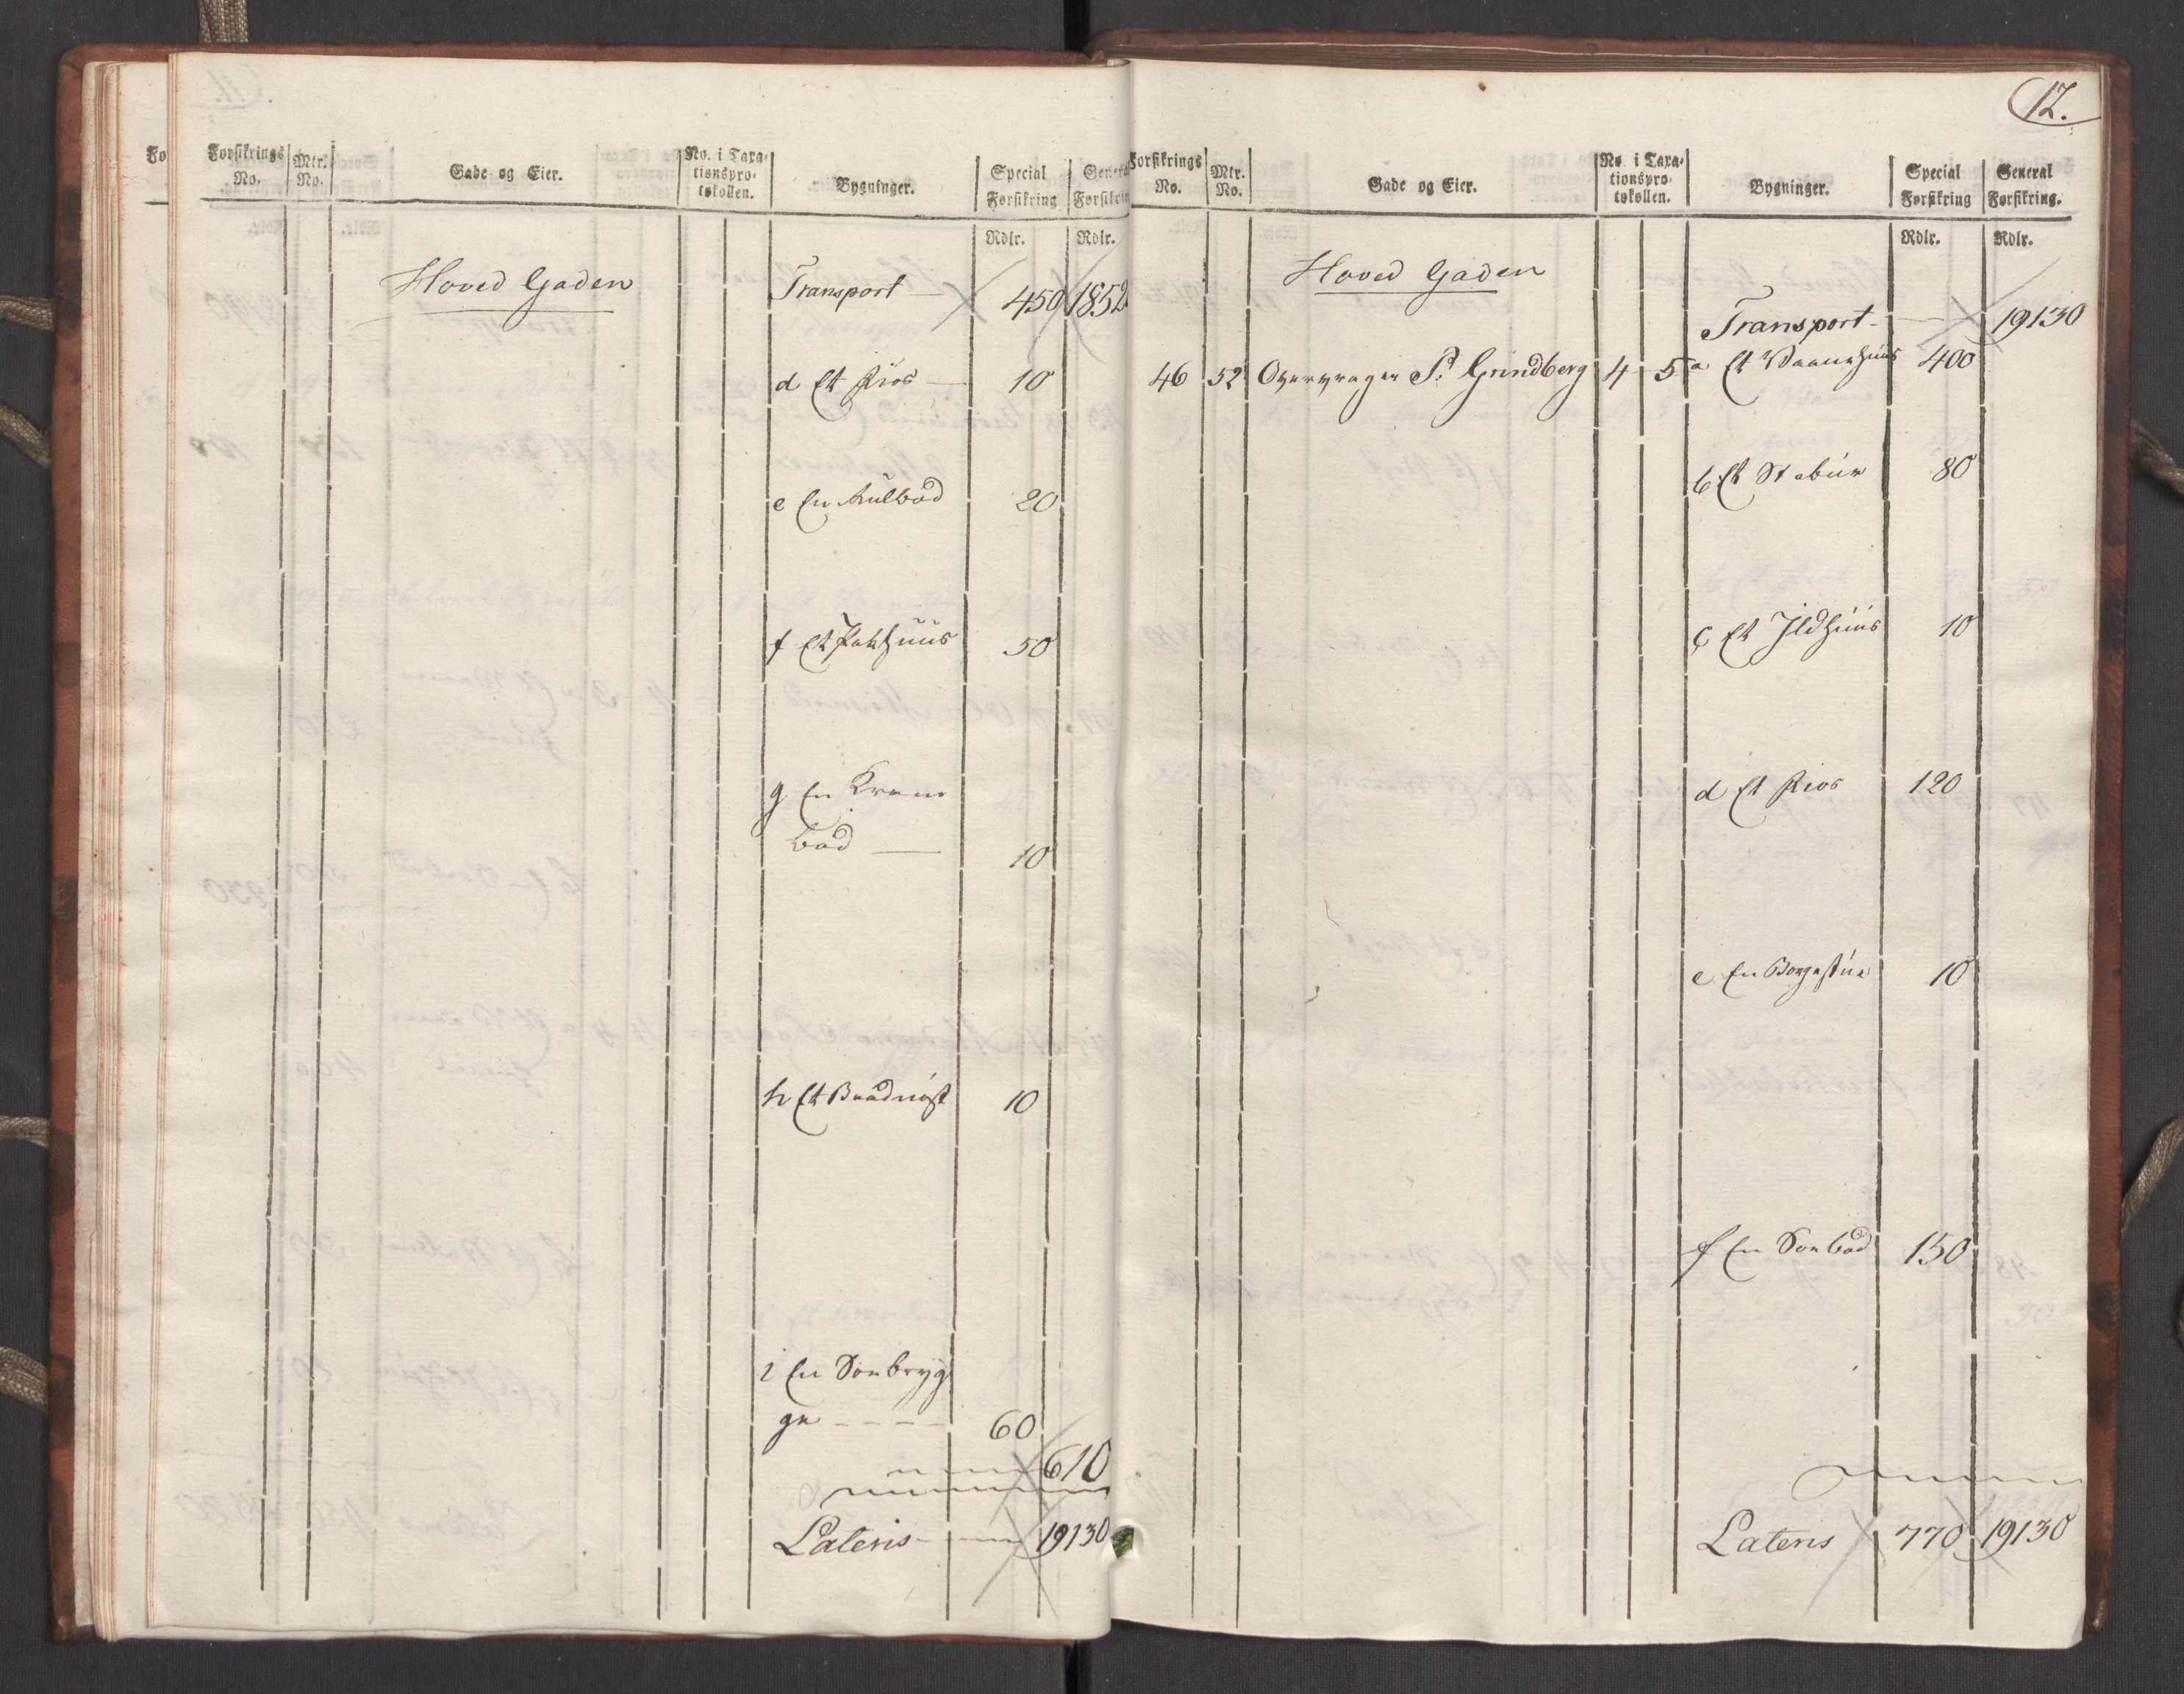 Forsikrings No.
Mtr. No.
Gade og Eier.
No. i Taxationsprotokollen.
Bygninger.
Special Forsikring
Forsikring
Rdlr.
Rdlr.
Hoved Gaden
Transport — 450 1852
d Et Fios — 10
e En Kulbod 20
f Et Pakhuus 50
g En Kram
bod — 10
h Et Baadnøst 10
i En Søebryg
ge - - - - 60
610
Lateris - 19130
12.
Forsikrings No.
Mtr. No.
Gade og Eier.
No. i Taxationsprotokollen.
Bygninger.
Special Forsikring
General Forsikring.
Rdlr.
Rdlr.
Hoved Gaden
Transport - 19130
46 52 Overvrager P. Grindberg 4 5 a Et Vaanehuus 400
b Et Stabur 80
c Et Ildhuus 10
d Et Fios 120
e En Borgestue 10
f En Søebod 150
Lateris 770 19130